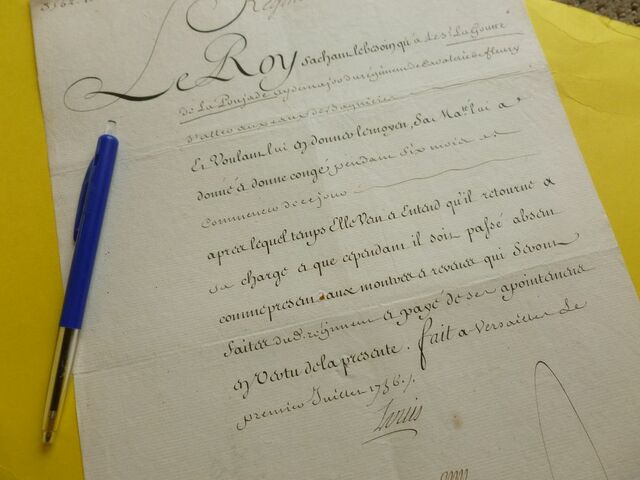 Le Roy sachant le besoin qu'a le Sr. La Goutte
de La Poujade aydemajor du régiment de Cavalerie de fleury
d'aller aux eaux de
Et Voulant lui en donner le moyen, Sa Maté. lui a
donné et donne congé pendant Six mois a
Commencer de ce jour
apres lequel temps Elle Veut et Entend qu'il retourne a
sa charge et que cependant il soit passé absent
comme present aux montres et reveues qui Seront
faites dud. regiment et payé de ses apointemens
en Vertu de la presente. fait a Versailles le
premier Juillet 1736.
Louis